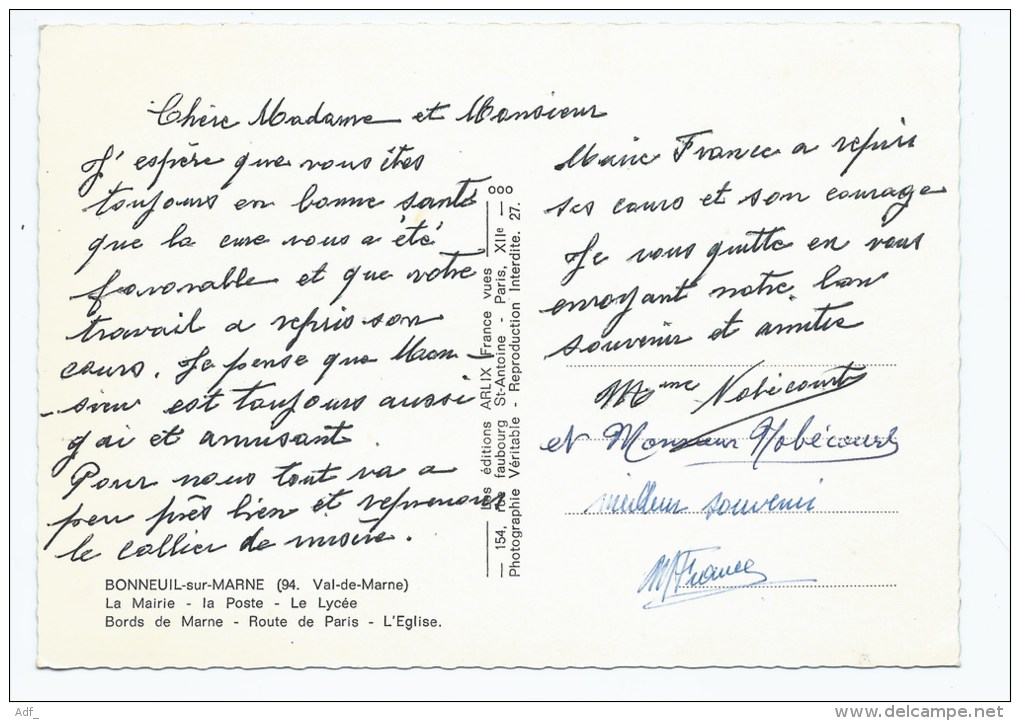 Chère Madame et Monsieur
J'espère que vous êtes
toujours en bonne santé
que la cure vous a été
favorable et que votre
travail a repris son
cours. Je pense que Mon-
sieur est toujours aussi
gai et amusant.
Pour nous tout va a
peu près bien et reprenons
le collier de misère.
BONNEUIL-sur-MARNE (94. Val-de-Marne)
La Mairie - la Poste - Le Lycée
Bords de Marne - Route de Paris - L'Eglise.
ooo
Les éditions ARLIX France vues
154, rue faubourg St-Antoine - Paris, XIIe
Photographie Véritable - Reproduction Interdite. 27.
Marie France a repris
ses cours et son courage
Je vous quitte en vous
envoyant notre bon
souvenir et amitié
Mme Nobécourt
et Monsieur Nobécourt
meilleur souvenir
M France
Adf_
delcampe.net